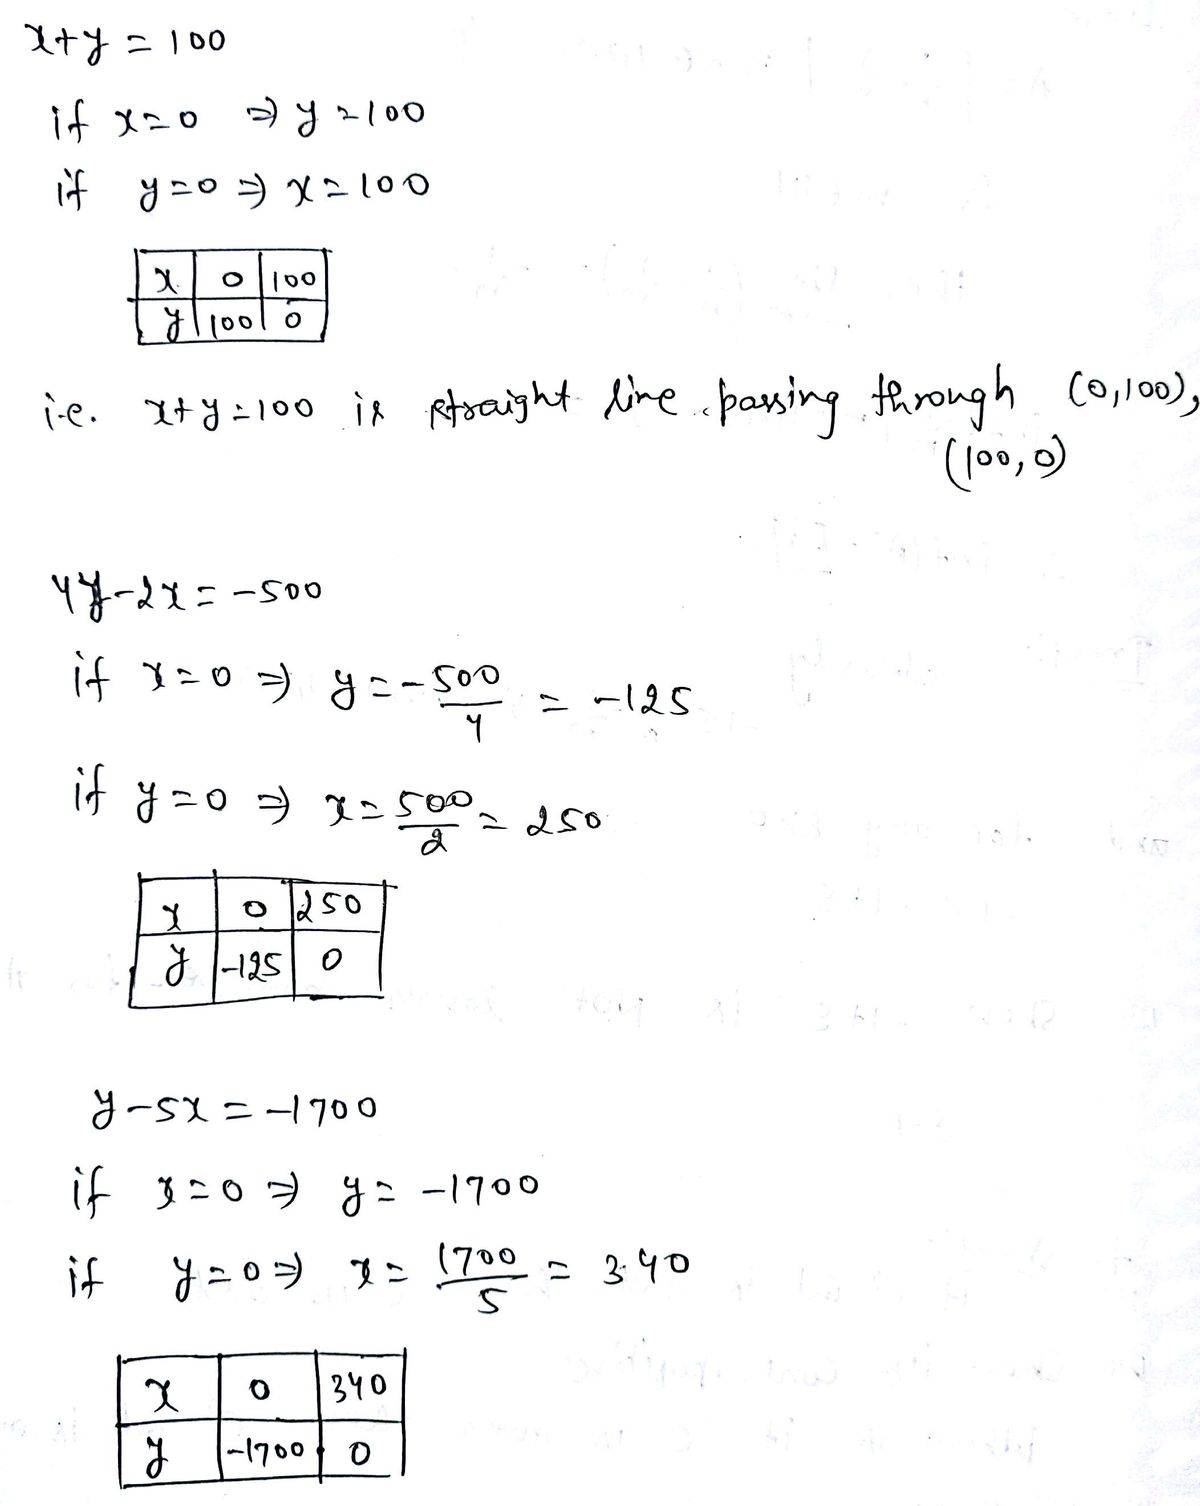 x+y = 100
if x=0 ⇒ y=100
if y=0 ⇒ x=100
x 0 100
y 100 0
i.e. x+y=100 is straight line passing through (0,100),
(100,0)
4y-2x = -500
if x=0 ⇒ y=-500/4 = -125
if y=0 ⇒ x=500/2 = 250
x 0 250
y -125 0
y-5x = -1700
if x=0 ⇒ y= -1700
if y=0 ⇒ x= 1700/5 = 340
x 0 340
y -1700 0